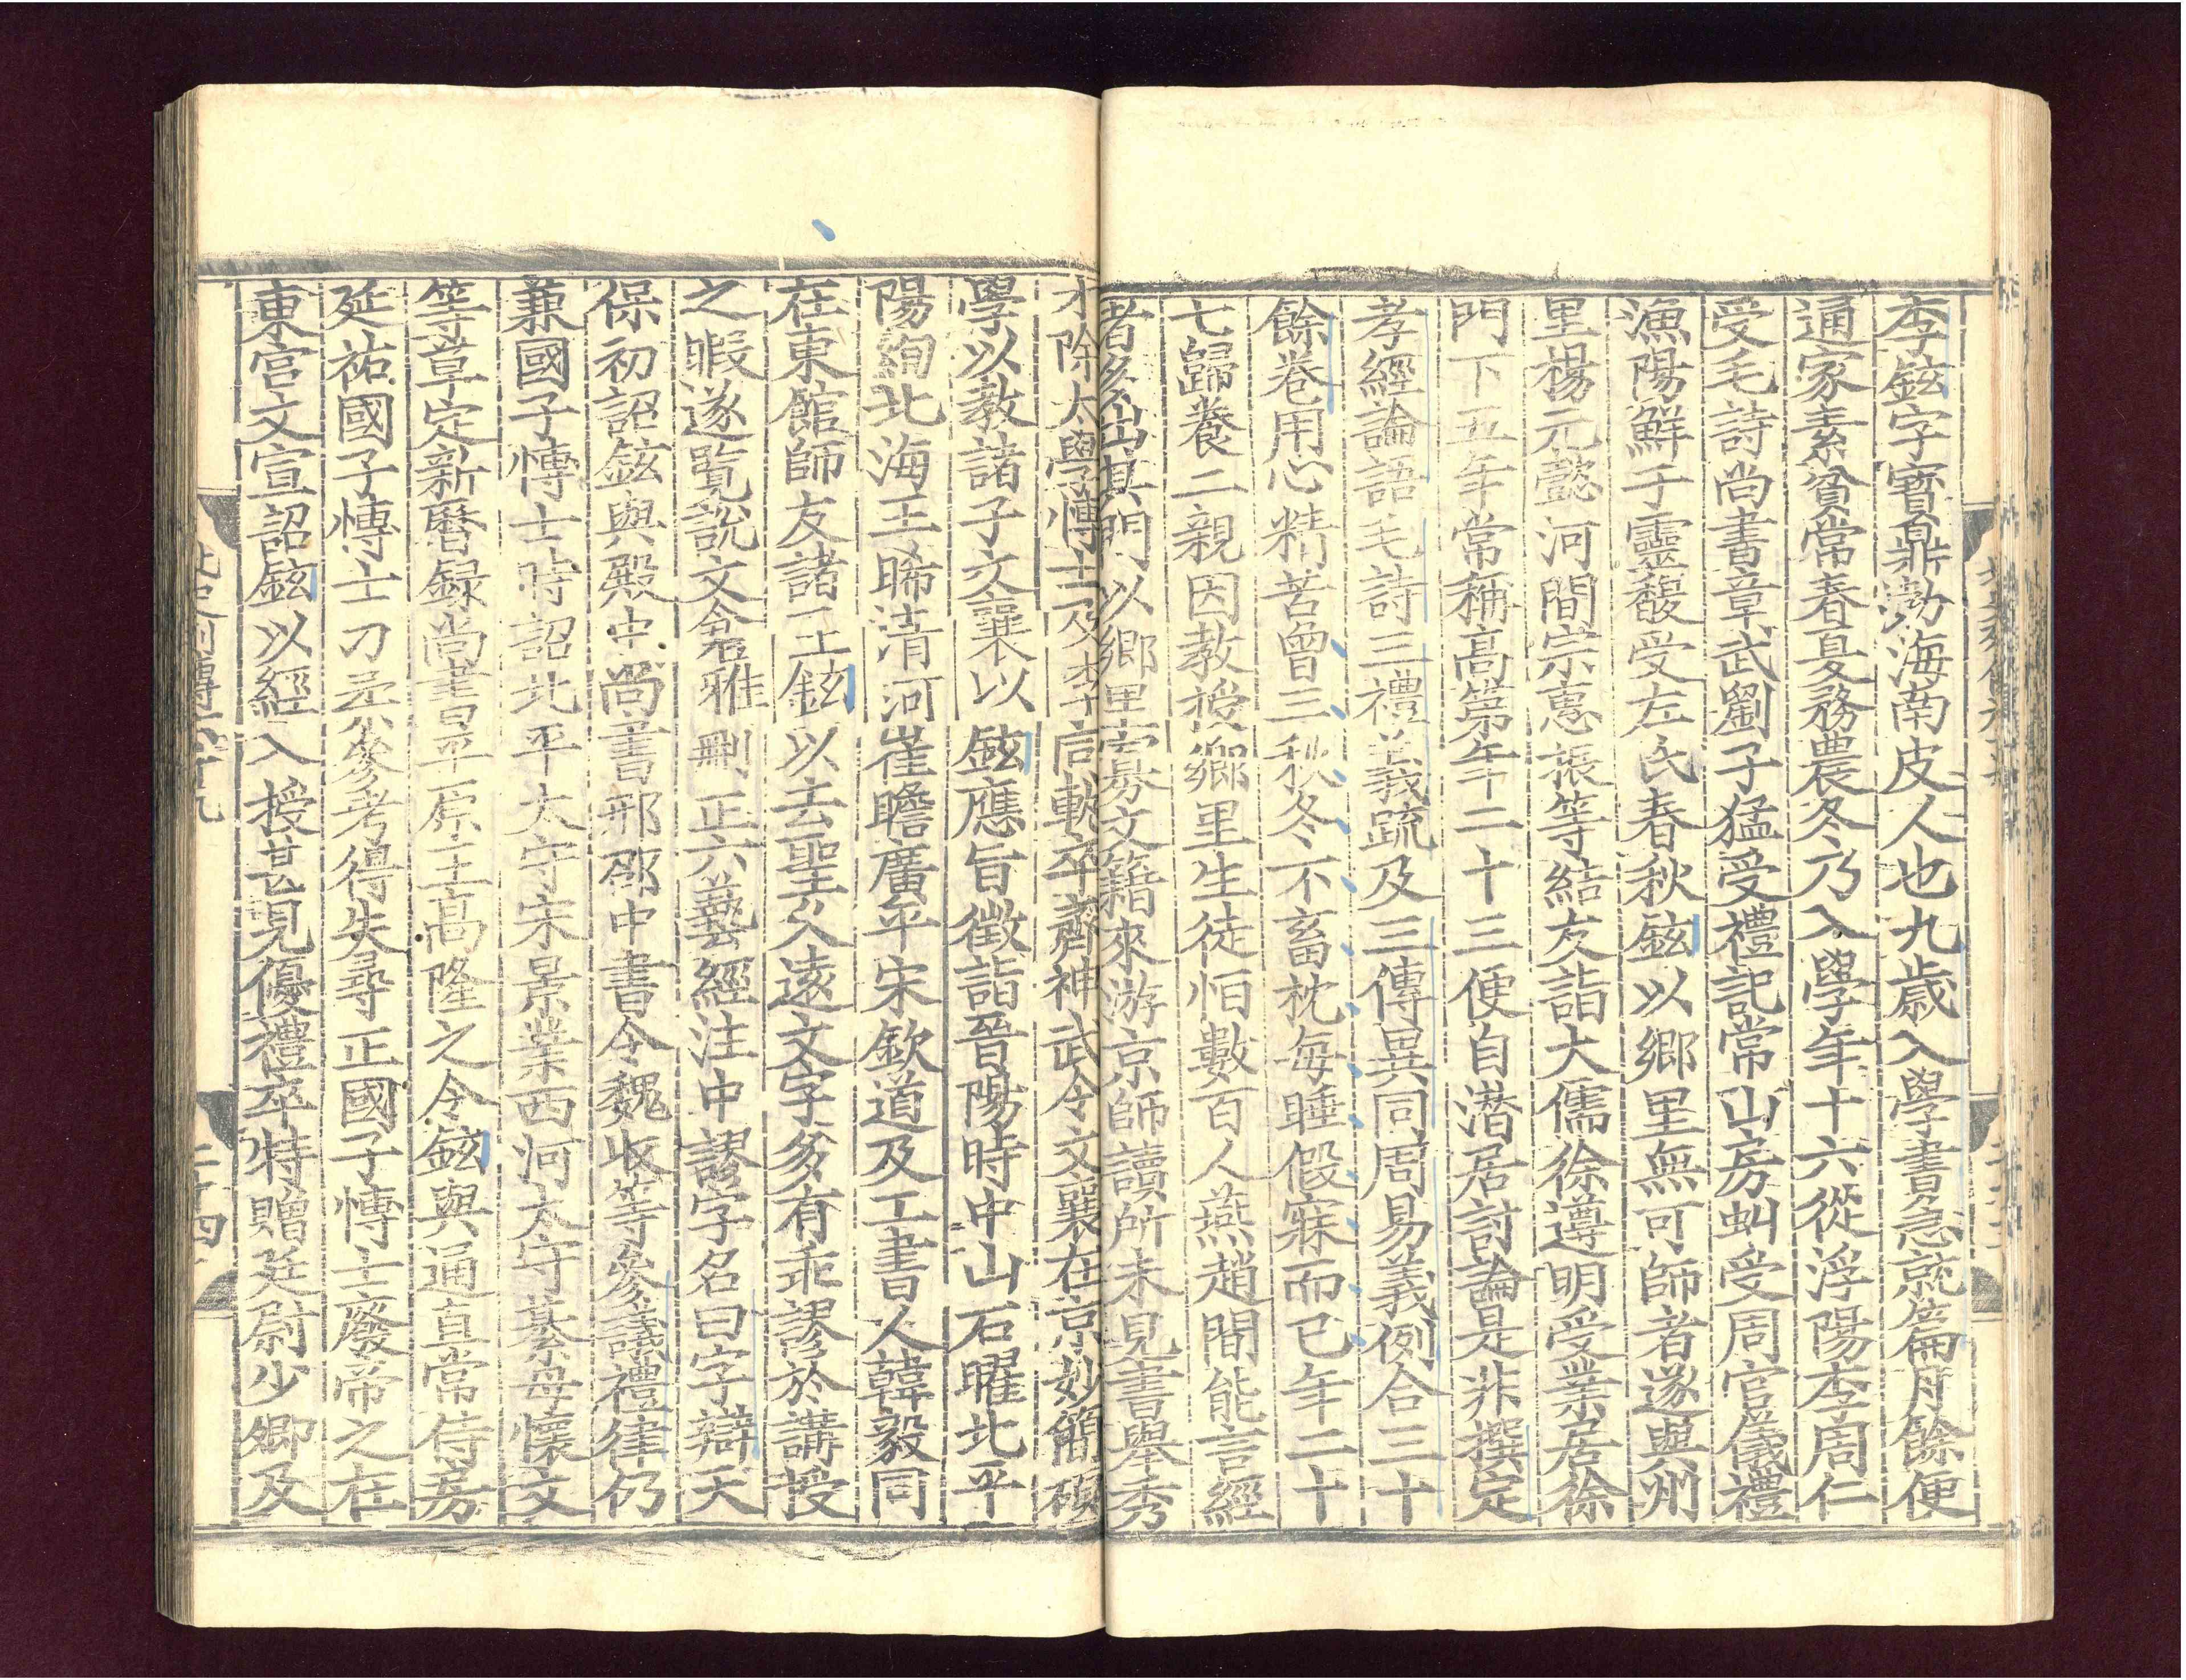 李鉉字寶鼎渤海南皮人也九歲入學書急就篇月餘便
通家素貧常春夏務農冬乃入學年十六從浮陽李周仁
受毛詩尚書章武劉子猛受禮記常山房虯受周官儀禮
漁陽鮮于靈馥受左氏春秋鉉以鄉里無可師者遂與州
里楊元懿河間宗惠振等結友詣大儒徐遵明受業居徐
門下五年常稱高第年二十三便自潛居討論是非撰定
孝經論語毛詩三禮義疏及三傳異同周易義例合三十
餘卷用心精苦曾三秋冬不畜枕每睡假寐而已年二十
七歸養二親因教授鄉里生徒恒數百人燕趙間能言經
者多出其門以鄉里寡文籍來游京師讀所未見書舉秀
才除太學博士及李同軌卒齊神武令文襄在京妙簡碩
學以教諸子文襄以鉉應旨徵詣晉陽時中山石曜北平
陽絢北海王晞清河崔瞻廣平宋欽道及工書人韓毅同
在東館師友諸王鉉以去聖久遠文字多有乖謬於講授
之暇遂覽說文倉雅刪正六藝經注中謬字名曰字辯天
保初詔鉉與殿中尚書邢邵中書令魏收等參議禮律仍
兼國子博士時詔北平太守宋景業西河太守綦母懷文
等草定新曆録尚書平原王高隆之令鉉與通直常侍房
延祐國子博士刁柔參考得失尋正國子博士廢帝之在
東宮文宣詔鉉以經入授甚見優禮卒特贈廷尉少卿及
北史列傳六十九
二十四